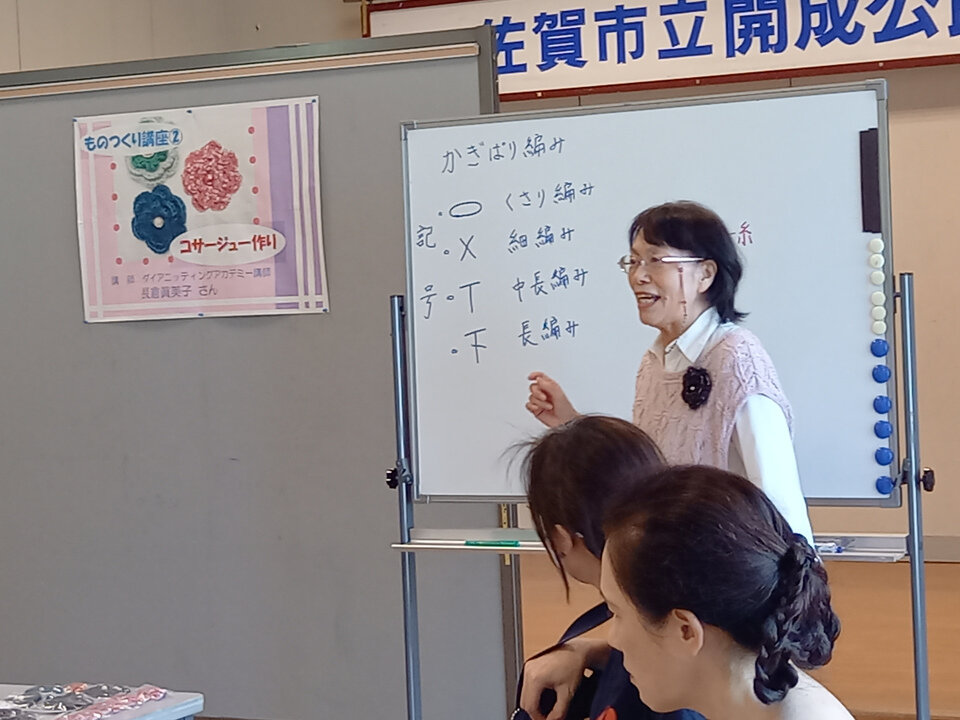 佐賀市立開成公
ものつくり講座②
コサージュー作り
講師 ダイアニッティングアカデミー講師
長倉眞美子 さん
かぎばり編み
記号
・⬭ くさり編み
・X 細編み
・T 中長編み
・下 長編み
糸